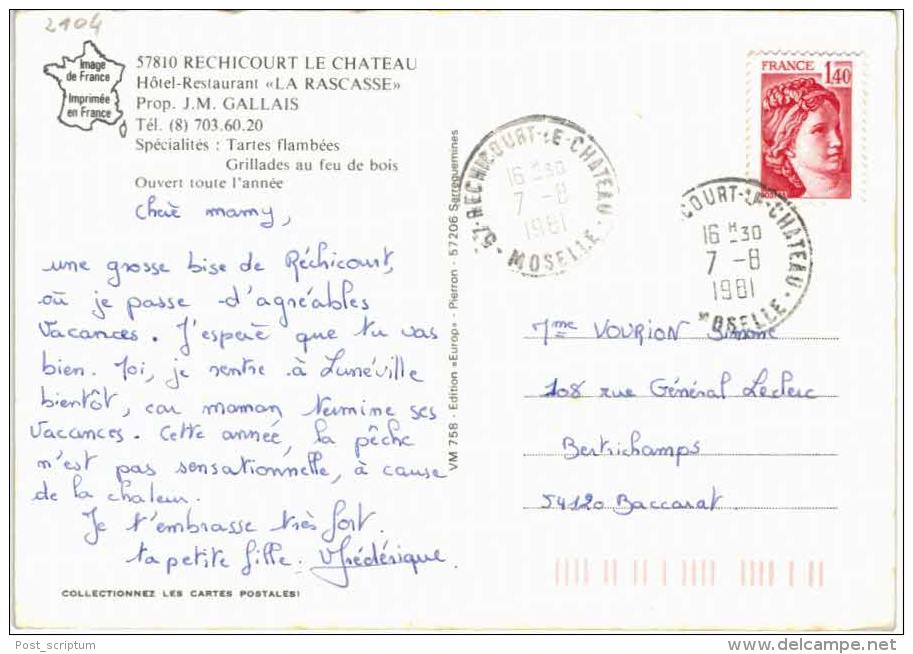 2104
Image
de France
Imprimée
en France
57810 RECHICOURT LE CHATEAU
Hôtel-Restaurant «LA RASCASSE»
Prop. J.M. GALLAIS
Tél. (8) 703.60.20
Spécialités : Tartes flambées
Grillades au feu de bois
Ouvert toute l'année
Chère mamy,
une grosse bise de Réchicourt,
où je passe d'agréables
vacances. J'espère que tu vas
bien. Moi, je rentre à Lunéville
bientôt, car maman termine ses
vacances. Cette année, la pêche
n'est pas sensationnelle, à cause
de la chaleur.
Je t'embrasse très fort.
ta petite fille. Frédérique.
COLLECTIONNEZ LES CARTES POSTALES!
VM 758 - Edition «Europ» - Pierron - 57206 Sarreguemines
57-RECHICOURT-LE-CHATEAU
16 H 30
7 -8
1981
MOSELLE
FRANCE
1,40
COURT-LE-CHATEAU
16 H 30
7 -8
1981
MOSELLE
Mme VOURION Simone
108 rue Général Leclerc
Bertrichamps
54120 Baccarat
Post_scriptum
www.delcampe.net